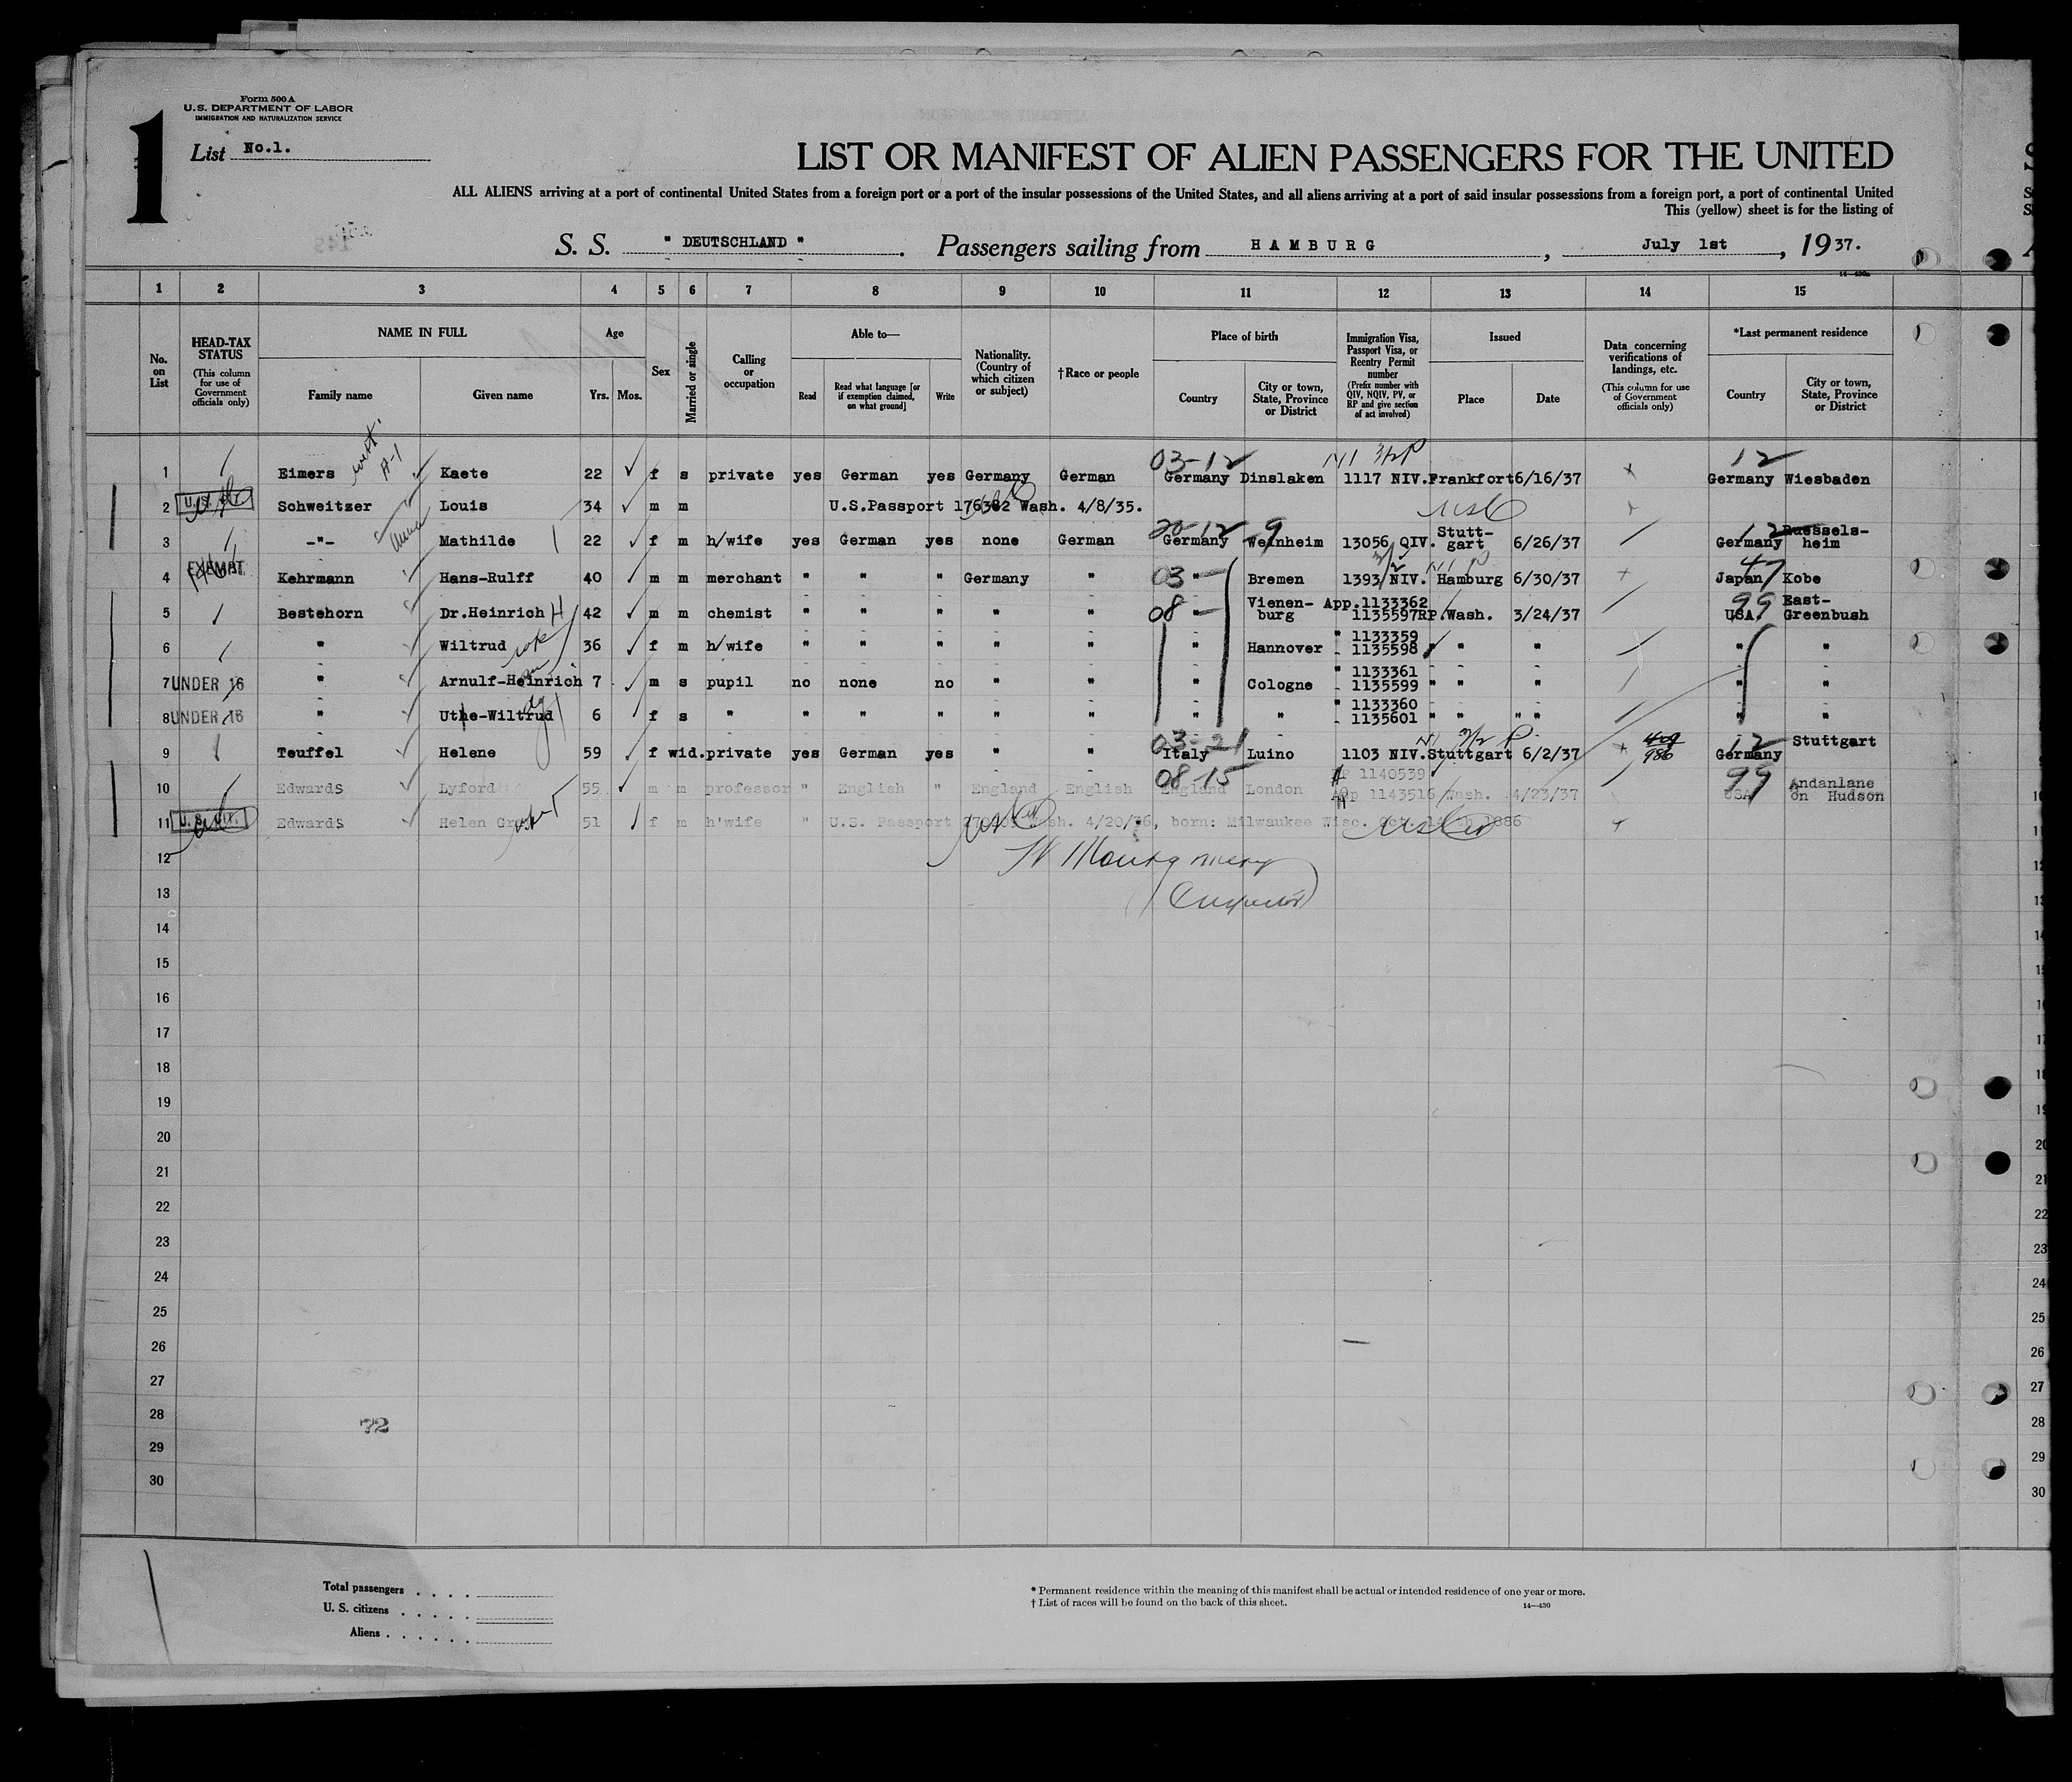 Form 500 A
U. S. DEPARTMENT OF LABOR
IMMIGRATION AND NATURALIZATION SERVICE
1
List No.1.
LIST OR MANIFEST OF ALIEN PASSENGERS FOR THE UNITED
ALL ALIENS arriving at a port of continental United States from a foreign port or a port of the insular possessions of the United States, and all aliens arriving at a port of said insular possessions from a foreign port, a port of continental United
This (yellow) sheet is for the listing of
S. S. " DEUTSCHLAND ". Passengers sailing from HAMBURG, July 1st, 1937.
14—430a
1 2 3 4 5 6 7 8 9 10 11 12 13 14 15
No. on List
HEAD-TAX STATUS (This column for use of Government officials only)
NAME IN FULL Family name Given name
Age Yrs. Mos.
Sex
Married or single
Calling or occupation
Able to— Read Read what language [or if exemption claimed, on what ground] Write
Nationality. (Country of which citizen or subject)
†Race or people
Place of birth Country City or town, State, Province or District
Immigration Visa, Passport Visa, or Reentry Permit number (Prefix number with QIV, NQIV, PV, or RP and give section of act involved)
Issued Place Date
Data concerning verifications of landings, etc. (This column for use of Government officials only)
*Last permanent residence Country City or town, State, Province or District
03-12 12
1 Eimers Kaete 22 f s private yes German yes Germany German Germany Dinslaken 1117 NIV. Frankfort 6/16/37 Germany Wiesbaden
2 U.S. CIT. Schweitzer Louis 34 m m U.S.Passport 176382 Wash. 4/8/35.
20-12 9 12
3 -"- Anna Mathilde 22 f m h/wife yes German yes none German Germany Weinheim 13056 QIV. Stutt- gart 6/26/37 Germany Russels- heim
4 EXEMPT Kehrmann Hans-Rulff 40 m m merchant " " " Germany " 03 " Bremen 1393 NIV. Hamburg 6/30/37 47 Japan Kobe
5 Bestehorn Dr.Heinrich H 42 m m chemist " " " " " 08 " Vienen- burg App.1133362 1135597RP. Wash. 3/24/37 99 USA. East- Greenbush
6 " Wiltrud 36 f m h/wife " " " " " " Hannover " 1133359 1135598 " " " " "
7 UNDER 16 " Arnulf-Heinrich 7 m s pupil no none no " " " Cologne " 1133361 1135599 " " " " "
8 UNDER 16 " Uthe-Wiltrud 6 f s " " " " " " " " " 1133360 1135601 " " " " " "
9 Teuffel Helene 59 f wid. private yes German yes " " 03-21 Italy Luino 1103 NIV. Stuttgart 6/2/37 986 12 Germany Stuttgart
10 Edwards Lyford 55 m m professor " English " England English 08-15 England London 1140539 App 1143516 Wash. 4/23/37 99 USA Andanlane on Hudson
11 U. S. CIT. Edwards Helen 51 f m h'wife " U.S. Passport Wash. 4/20/36, born: Milwaukee Wisc. Oct. 14th 1886
12 Montgomery
13 Inspector
14
15
16
17
18
19
20
21
22
23
24
25
26
27
28 72
29
30
Total passengers
U. S. citizens
Aliens
* Permanent residence within the meaning of this manifest shall be actual or intended residence of one year or more.
† List of races will be found on the back of this sheet.
14—430